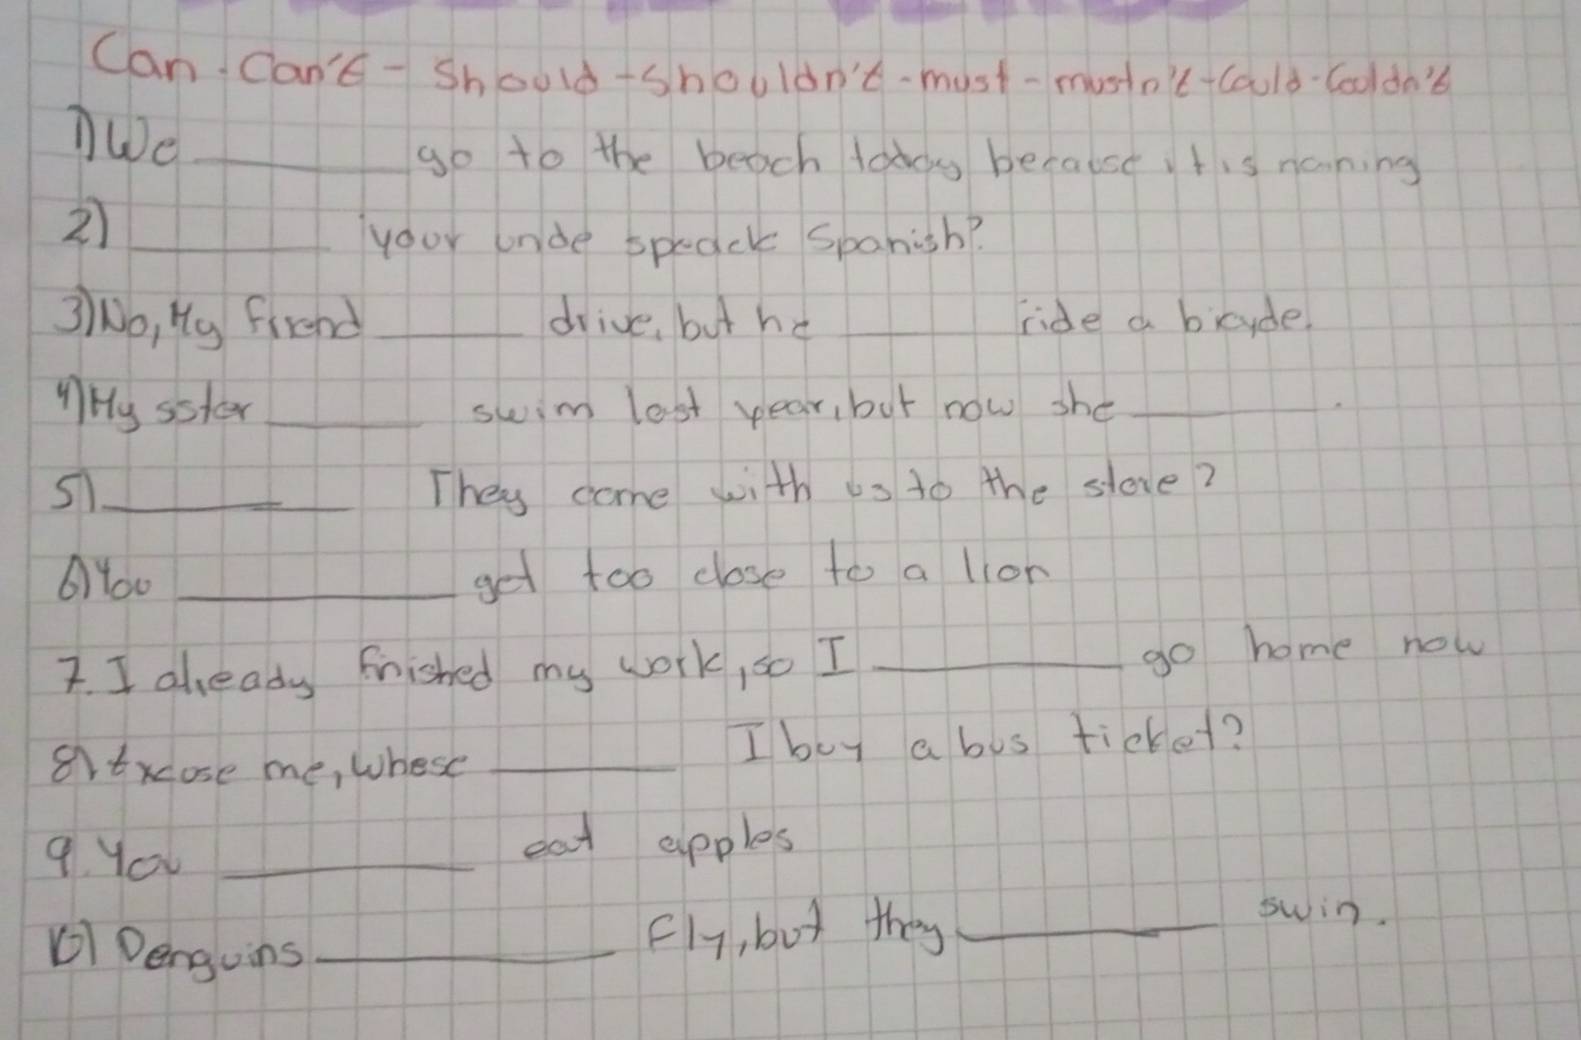 Can - Can't - Should - Shouldn't - must - mustn't - Could - Couldn't
1) We ______ go to the beach today because it is raining
2) ______ your uncle speack Spanish?
3) No, My firend ______ drive, but he ______ ride a bicycle.
4) My sster ______ swim last year, but now she ______.
5) ______ They come with us to the store?
6) You ______ get too close to a lion
7. I already finished my work, so I ______ go home now
8) Excuse me, whese ______ I buy a bus ticket?
9. You ______ eat apples
10) Penguins ______ Fly, but they ______ swin.